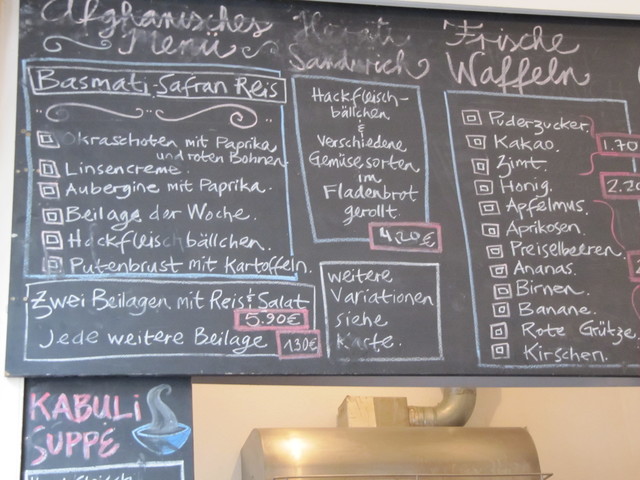 Afghanisches
Menü
Basmati Safran Reis
Okraschoten mit Paprika
und roten Bohnen
Linsencreme.
Aubergine mit Paprika.
Beilage der Woche.
Hackfleischbällchen.
Putenbrust mit Kartoffeln.
Zwei Beilagen mit Reis & Salat
5.90€
Jede weitere Beilage 1.30€
Herati
Sandwich
Hackfleisch-
bällchen
&
verschiedene
Gemüsesorten
im
Fladenbrot
gerollt.
4.20€
weitere
Variationen
siehe
Karte.
Frische
Waffeln
Puderzucker.
Kakao.
1.70
Zimt.
Honig.
2.20
Apfelmus.
Aprikosen.
Preiselbeeren.
Ananas.
Birnen.
Banane.
Rote Grütze.
Kirschen.
KABULI
SUPPE